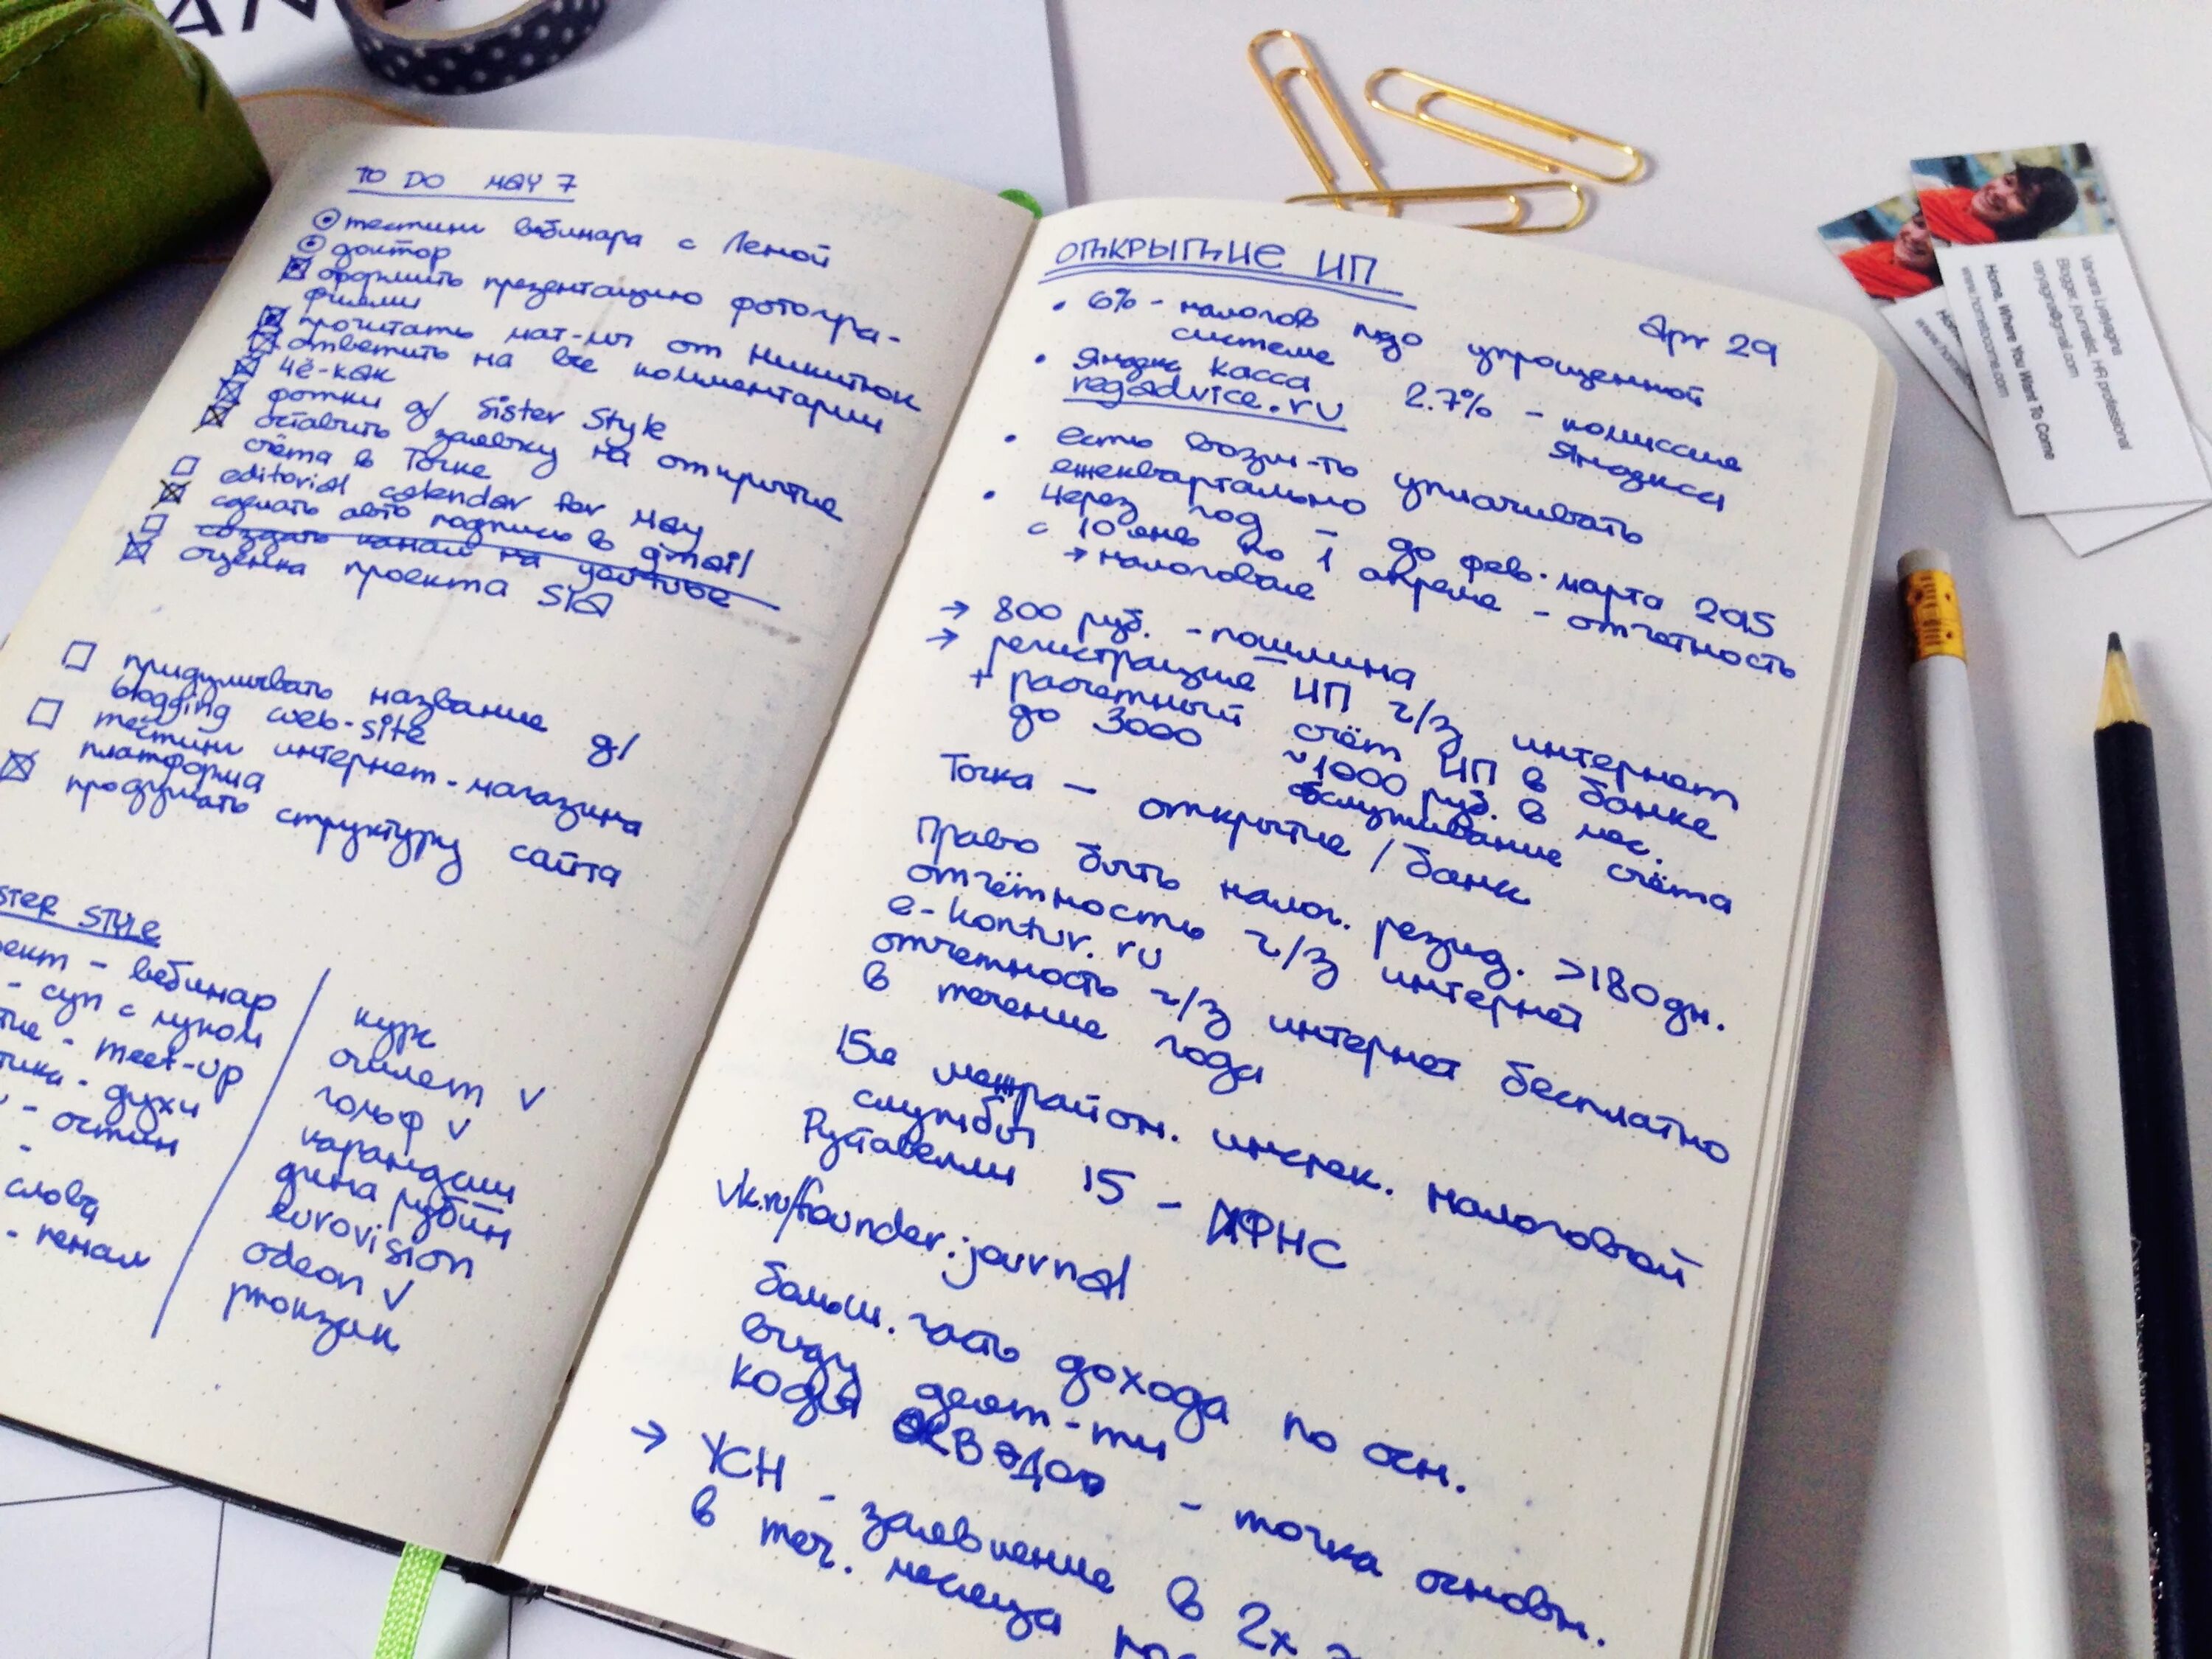 TO DO MAY 7
тестинг вебинара с Леной
доктор
оформить презентацию фотогра-
фиями
прочитать мат-лы от Никитюк
ответить на все комментарии
чё-как
фотки д/ Sister Style
оставить заявку на открытие
счёта в Точке
editorial calendar for May
сделать авто подпись в gmail
создать канал на youtube
оценка проекта SIA
придумывать название д/
blogging web-site
тестинг интернет-магазина
платформа
продумать структуру сайта
STER STYLE
ект - вебинар
- суп с луком
- meet-up
- духи
- остин
слова
- пенал
курк
очилет v
гольф v
карандаш
дина рубин
eurovision
odeon v
рюкзак
ОТКРЫТИЕ ИП
Apr 29
• 6% - налогов по упрощенной
системе
• Яндекс Касса 2.7% - комиссия
Яндекса
regadvice.ru
• есть возм-ть уплачивать
ежеквартально
• через год - до фев. марта 2015
с 10 янв по 1 апреля - отчетность
→ налоговая
→ 800 руб. - пошлина
→ регистрация ИП ч/з интернет
+ расчетный счёт ИП в банке
до 3000 ~1000 руб. в мес.
обслуживание счёта
Точка — открытие / банк
Право быть налог. резид. >180дн.
отчётность ч/з интернет
e-kontur.ru
отчетность ч/з интернет бесплатно
в течение года
15я межрайон. инспек. налоговой
службы
Руставелли 15 - ИФНС
vk.ru/founder.journal
больш. часть дохода по осн.
виду деят-ти
кодая ОКВЭДов - точка основн.
→ УСН - заявление в 2х
в теч. месяца
Varvara Lyalyagina
Blogger, journalist, HR professional
varvaglna@gmail.com
Home, Where You Want To Come
www.hometocome.com